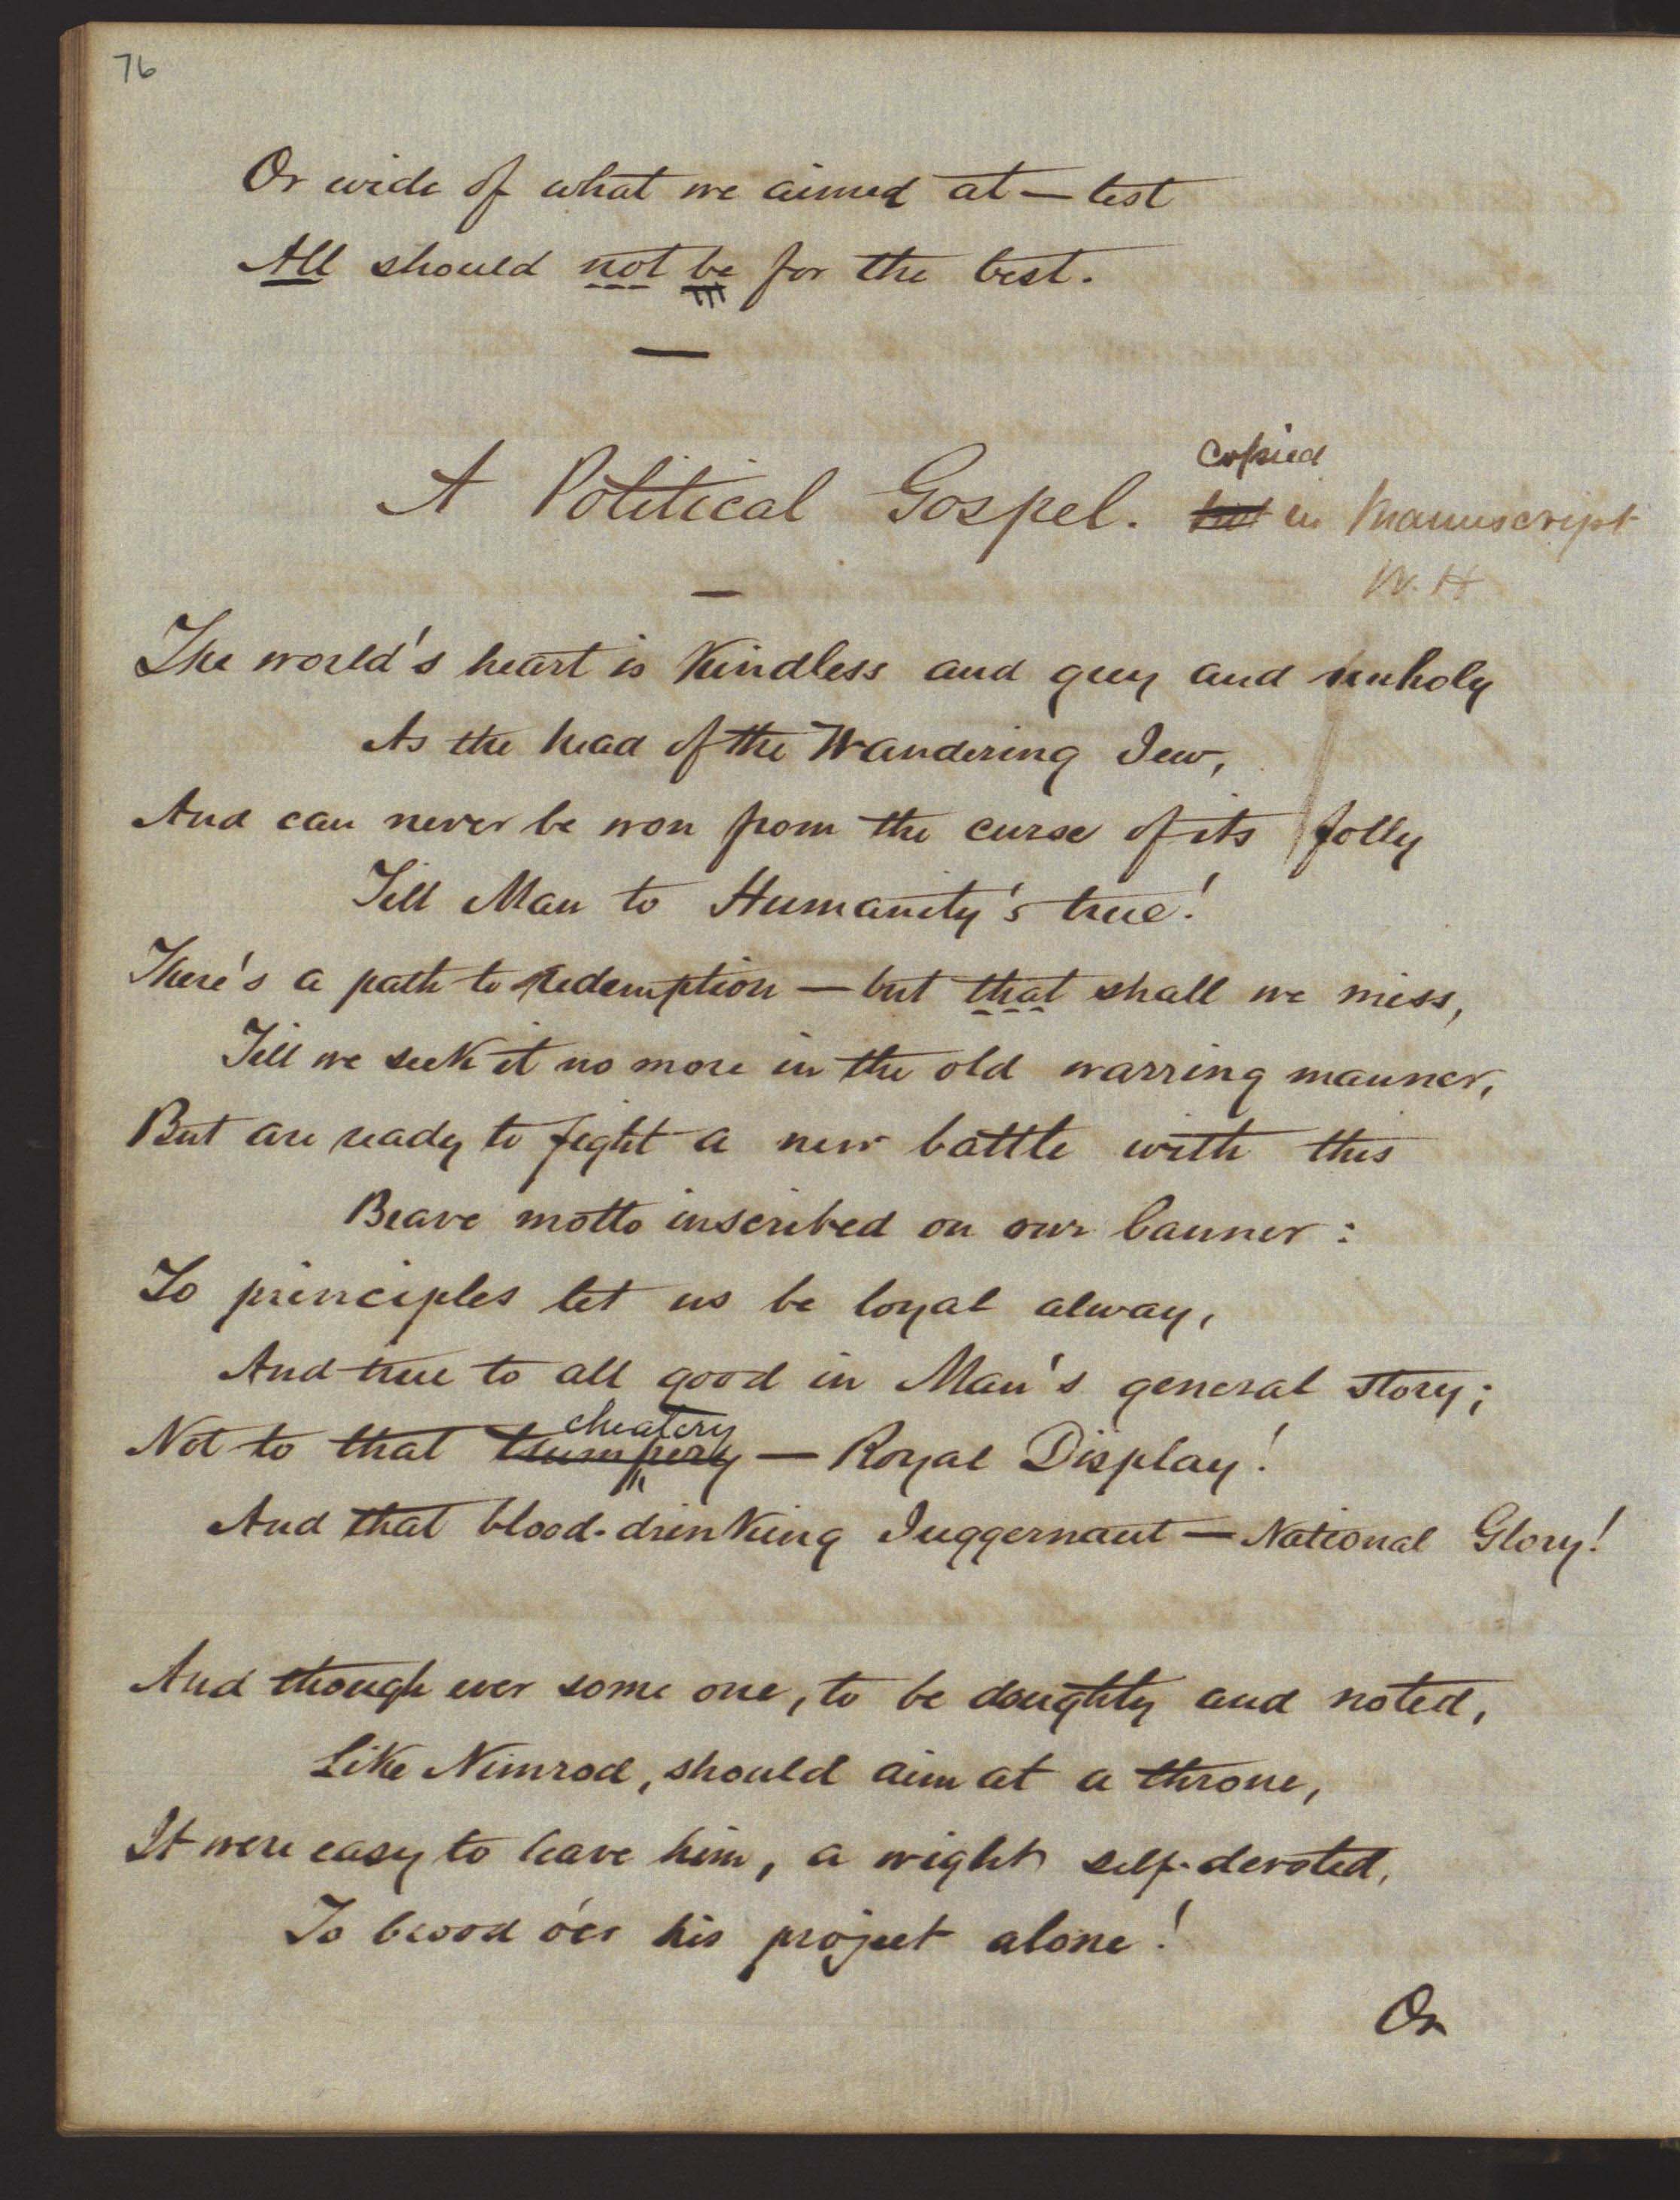 76
Or wide of what we aimed at — lest
All should not be for the best.
A Political Gospel.
copied
in Manuscript
W. H
The world's heart is kindless and grey and unholy
As the head of the Wandering Jew,
And can never be won from the curse of its folly
Till Man to Humanity's true!
There's a path to Redemption — but that shall we miss,
Till we seek it no more in the old warring manner,
But are ready to fight a new battle with this
Brave motto inscribed on our banner:
To principles let us be loyal alway,
And true to all good in Man's general story;
cheatery
Not to that trumpery — Royal Display!
And that blood-drinking Juggernaut — National Glory!
And though ever some one, to be doughty and noted,
Like Nimrod, should aim at a throne,
It were easy to leave him, a wight self-devoted,
To brood o'er his project alone!
Or